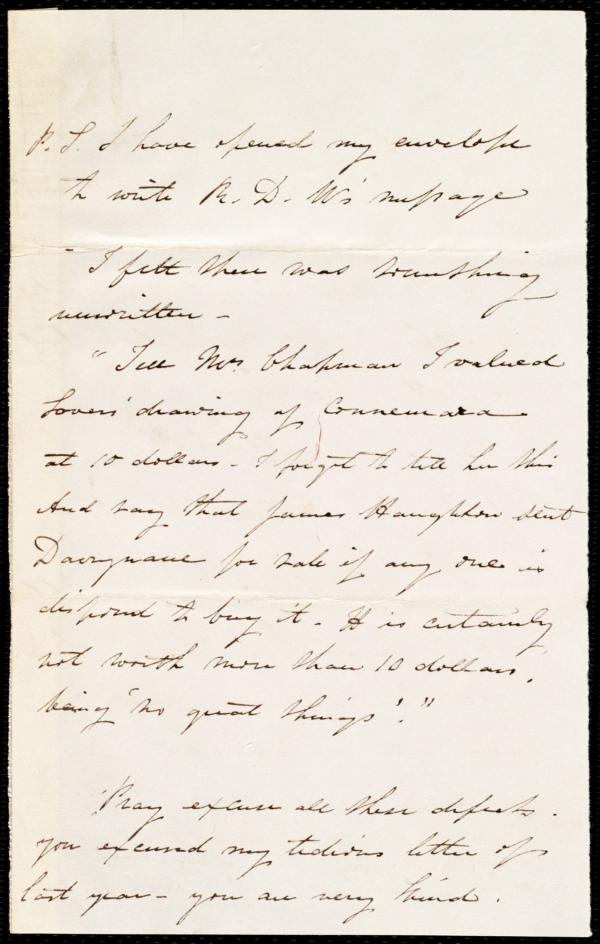 P. S. I have opened my envelope
to write R. D. W's message
I felt there was something
unwritten –
"Tell Mrs. Chapman I valued
Lovers' drawing of Connemara
at 10 dollars – I forgot to tell her this
And say that James Haughton sent
Darrynane for sale if any one is
disposed to buy it. It is certainly
not worth more than 10 dollars,
being 'no great things'."
Pray excuse all these defects.
you excused my tedious letter of
last year – you are very kind.